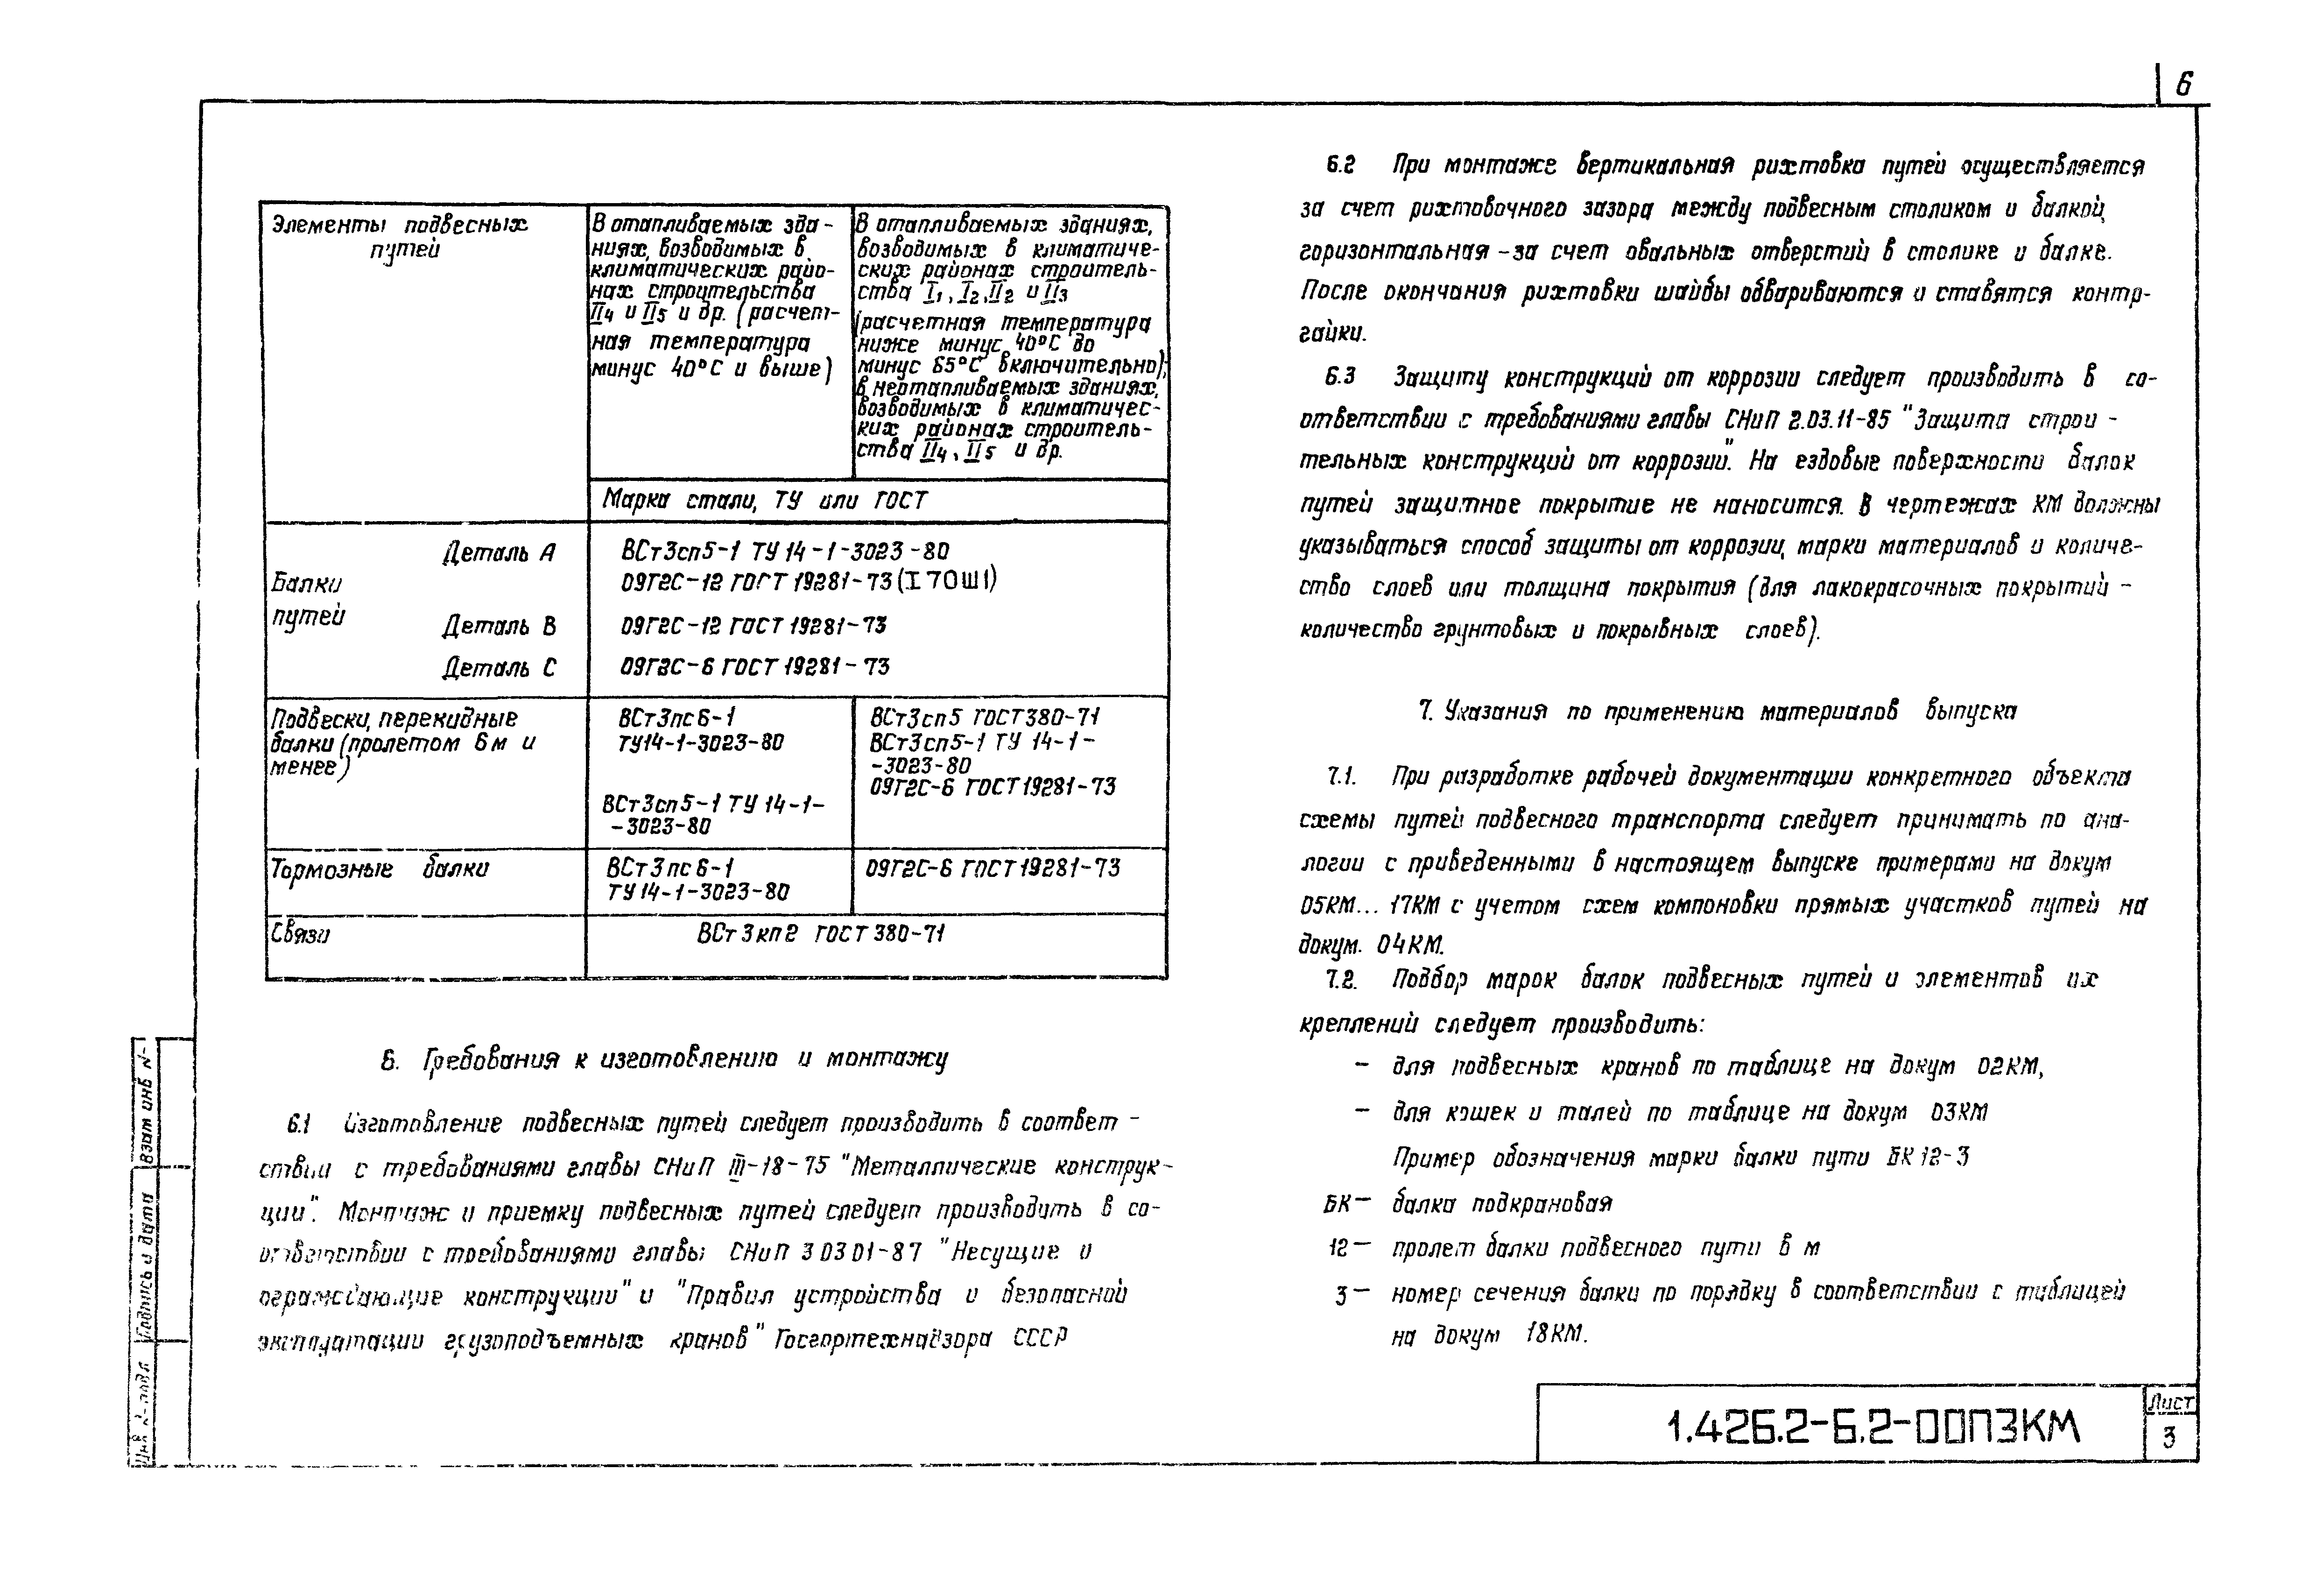 6
Элементы подвесных
путей
В отапливаемых зда-
ниях, возводимых в
климатических райо-
нах строительства
II4 и II5 и др. (расчет-
ная температура
минус 40°С и выше)
В отапливаемых зданиях,
возводимых в климатиче-
ских районах строитель-
ства I1, I2, II2 и II3
(расчетная температура
ниже минус 40°С до
минус 65°С включительно);
в неотапливаемых зданиях,
возводимых в климатичес-
ких районах строитель-
ства II4, II5 и др.
Марка стали, ТУ или ГОСТ
Балки
путей
Деталь А
ВСт3сп5-1 ТУ 14-1-3023-80
09Г2С-12 ГОСТ 19281-73 (I 70Ш1)
Деталь В
09Г2С-12 ГОСТ 19281-73
Деталь С
09Г2С-6 ГОСТ 19281-73
Подвески, перекидные
балки (пролетом 6м и
менее)
ВСт3пс6-1
ТУ14-1-3023-80
ВСт3сп5-1 ТУ 14-1-
-3023-80
ВСт3сп5 ГОСТ380-71
ВСт3сп5-1 ТУ 14-1-
-3023-80
09Г2С-6 ГОСТ19281-73
Тормозные балки
ВСт3пс6-1
ТУ14-1-3023-80
09Г2С-6 ГОСТ19281-73
Связи
ВСт3кп2 ГОСТ 380-71
6. Требования к изготовлению и монтажу
6.1 Изготовление подвесных путей следует производить в соответ-
ствии с требованиями главы СНиП III-18-75 "Металлические конструк-
ции". Монтаж и приемку подвесных путей следует производить в со-
ответствии с требованиями главы СНиП 3 03 01-87 "Несущие и
ограждающие конструкции" и "Правил устройства и безопасной
эксплуатации грузоподъемных кранов" Госгортехнадзора СССР
6.2 При монтаже вертикальная рихтовка путей осуществляется
за счет рихтовочного зазора между подвесным столиком и балкой,
горизонтальная - за счет овальных отверстий в столике и балке.
После окончания рихтовки шайбы обвариваются и ставятся контр-
гайки.
6.3 Защиту конструкций от коррозии следует производить в со-
ответствии с требованиями главы СНиП 2.03.11-85 "Защита строи-
тельных конструкций от коррозии". На ездовые поверхности балок
путей защитное покрытие не наносится. В чертежах КМ должны
указываться способ защиты от коррозии, марки материалов и количе-
ство слоев или толщина покрытия (для лакокрасочных покрытий -
количество грунтовых и покрывных слоев).
7. Указания по применению материалов выпуска
7.1. При разработке рабочей документации конкретного объекта
схемы путей подвесного транспорта следует принимать по ана-
логии с приведенными в настоящем выпуске примерами на докум
05КМ... 17КМ с учетом схем компоновки прямых участков путей на
докум. 04КМ.
7.2. Подбор марок балок подвесных путей и элементов их
креплений следует производить:
- для подвесных кранов по таблице на докум 02КМ,
- для кошек и талей по таблице на докум 03КМ
Пример обозначения марки балки пути БК 12-3
БК- балка подкрановая
12- пролет балки подвесного пути в м
3- номер сечения балки по порядку в соответствии с таблицей
на докум 18КМ.
1.426.2-6.2-00ПЗКМ
Лист
3
Взам инв N-
Подпись и дата
Инв N-подл